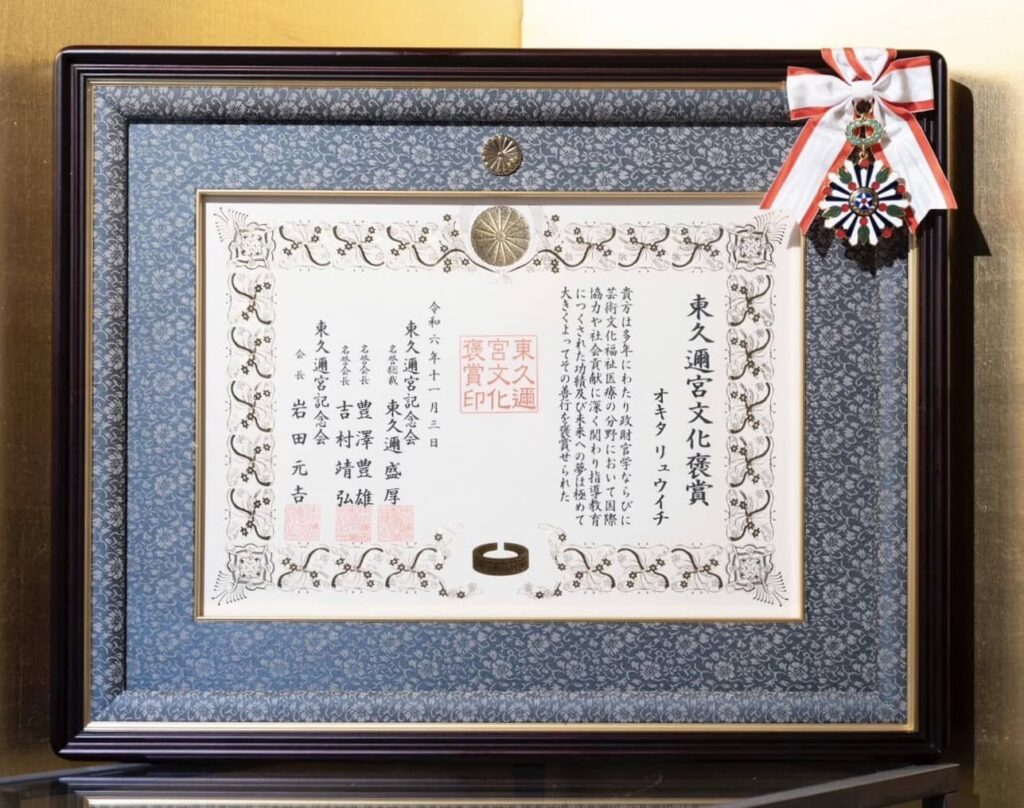 東久邇宮文化褒賞
オキタ リュウイチ
貴方は多年にわたり政財官学ならびに
芸術文化福祉医療の分野において国際
協力や社会貢献に深く関わり指導教育
につくされた功績及び未来への夢は極めて
大きくよってその善行を褒賞せられた
東久邇
宮文化
褒賞印
令和六年十一月三日
東久邇宮記念会
名誉総裁 東久邇盛厚
名誉会長 豊澤豊雄
名誉会長 吉村靖弘
東久邇宮記念会
会長 岩田元吉